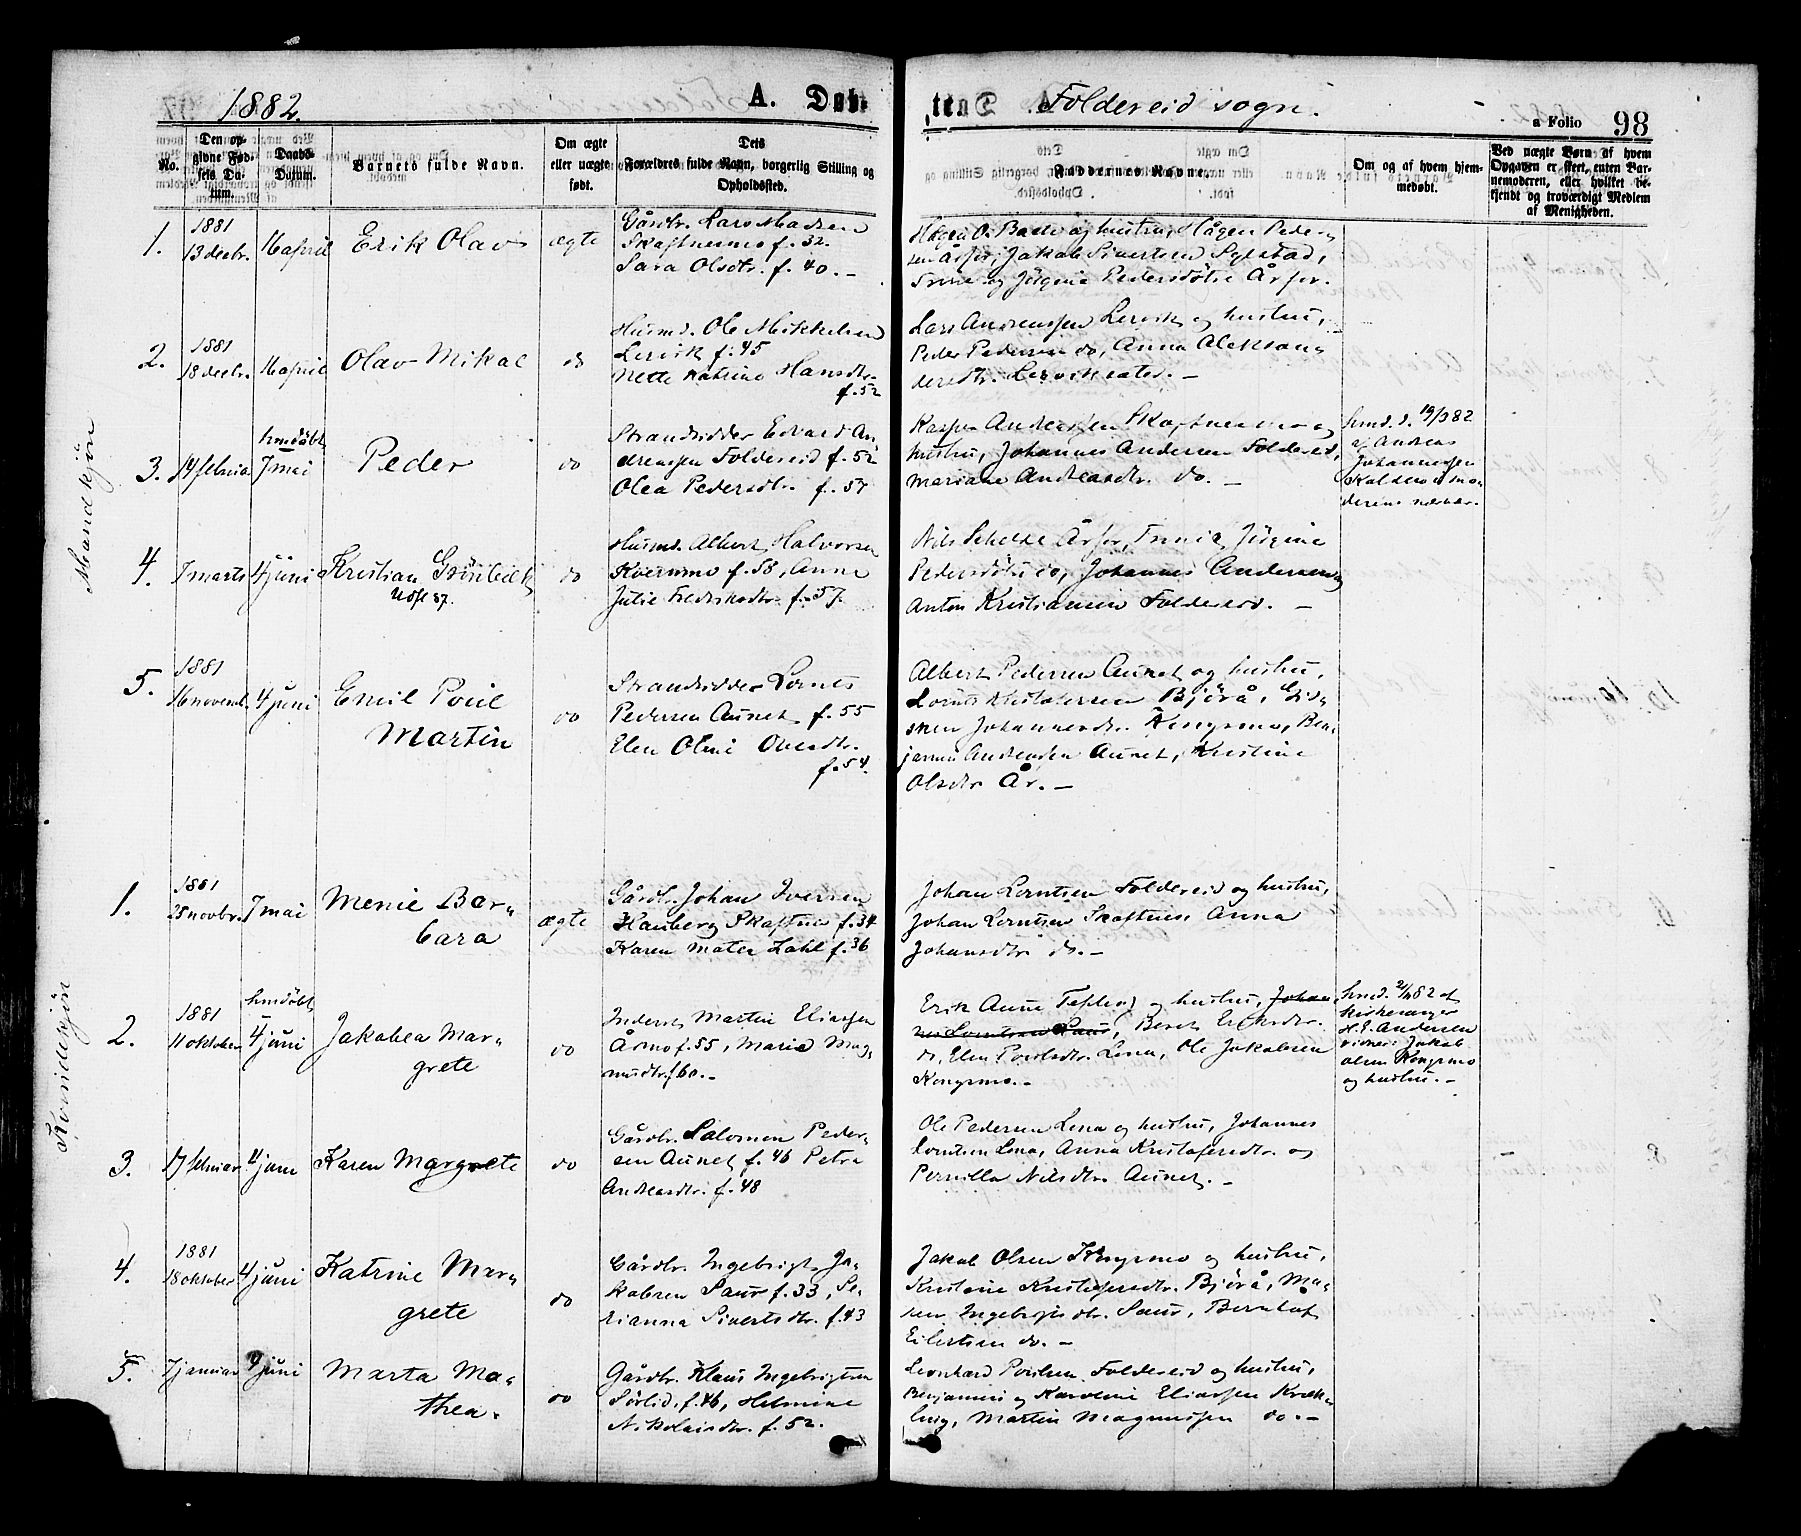 1882.
A. Døb
Foldereid sogn.
a Folio 98
No.
Den opgivne Fødsels Datum.
Daabs-Datum.
Barnets fulde Navn.
Om ægte eller uægte født.
Dets Forældres fulde Navn, borgerlig Stilling og Opholdssted.
Faddernes Navne.
Om og af hvem hjemmedøbt.
Ved uægte Børn af hvem Opgaven er skeet, enten Barnemoderen, eller hvilket bekjendt og troværdigt Medlem af Menigheden.
Mandkjøn
1. 1881 13 decbr. 16 april Erik Olav ægte
Gårdbr. Lars Madsen
Skaftnesmo f. 32.
Sara Olsdtr. f. 40. –
Hågen O. og hustru, Hågen Peder-
sen Årfor, Jakob Sivertsen
Trine og Jörgine Pedersdøtre Årfor.
2. 1881 18 decbr. 16 april Olav Mikal do
Husmd. Ole Mikkelsen
Lervik f. 45
Nette Katrine Hansdtr.
f. 52
Lars Andreassen Lervik og hustru,
Peder Pedersen do, Anna Aleksan-
dersdtr. –
3. 14 februar hmdøbt 7 mai Peder do
Strandsidder Edvard An-
dreassen Foldereid f. 52
Olea Pedersdtr. f. 57
Kasper Andreassen Skaftnesmo og
hustru, Johannes Andersen Foldereid,
Mariane Andreasdtr. do. –
hmd. d. 19/3 82
af Andreas
Johannessen
4. 7 marts 4 juni Kristian Grönbeck do
Husmd. Albert Halvorsen
Kvernmo f. 58, Anne
Julie Fredriksdtr. f. 57.
Nils Årfor, Trine og Jörgine
Pedersdøtre do, Johannes Andersen og
Anton Kristiansen Foldereid. –
5. 1881 16 novembr. 4 juni Emil Poul
Martin do
Strandsidder Lornts
Pedersen Aunet f. 55
Elen Oline Ovesdtr.
f. 54.
Albert Pedersen Aunet og hustru,
Lornts Kristofersen Bjørå,
Johannesdtr. Kongsmo, Ben-
jamin Andreassen Aunet, Kristine
Olsdtr År. –
Kvindekjøn
1. 1881 25 novbr. 7 mai Menie Bar-
bara ægte
Gårdbr. Johan Iversen
Hauberg Skaftnes f. 34
Karen Mater Lahl f. 36
Johan Lorntsen Foldereid og hustru,
Johan Lorntsen Skaftnes Anna
Johansdtr do. –
2. 1881 11 oktober hmdøbt 4 juni Jakobea Mar-
grete do
Inderst Martin Eliassen
Årmo f. 55, Marie Mag-
nusdtr f 60. –
Erik Aune og hustru, Johan-
nes Lorntsen, Beret Eriksdtr.
do, Elen Poulsdtr. Lena, Ole Jakobsen
Kongsmo. –
hmd. 82 af
kirkesanger
H. E. Andersen
vidner: Jakob
Olsen Kongsmo
og hustru. –
3. 17 februar 4 juni Karen Margrete do
Gårdbr. Salomon Peder-
sen Aunet f. 46 Petra
Andreasdtr. f. 48
Ole Pedersen Lena og hustru, Johannes
Lorntsen Lena, Anna Kristofersdtr. og
Pernilla Nilsdtr. Aunet. –
4. 1881 18 oktober 4 juni Katrine Mar-
grete do
Gårdbr. Ingebrigt Ja-
kobsen Saur f. 33, Se-
rianna Sivertsdtr. f. 43
Jakob Olsen Kongsmo og hustru,
Kristine Kristofersdtr. Bjørå, Ma-
ren Ingebrigtsdtr. Saur, Berntof
Eilertsen do. –
5. 7 januar 4 juni Marta Ma-
thea. do
Gårdbr. Klaus Ingebrigtsen
Sørlid. f. 46, Helmine
Nikolaisdtr. f. 52.
Leonhard Poulsen Foldereid og hustru,
Benjamin og Karoline Eliassen
Martin Magnussen do. –